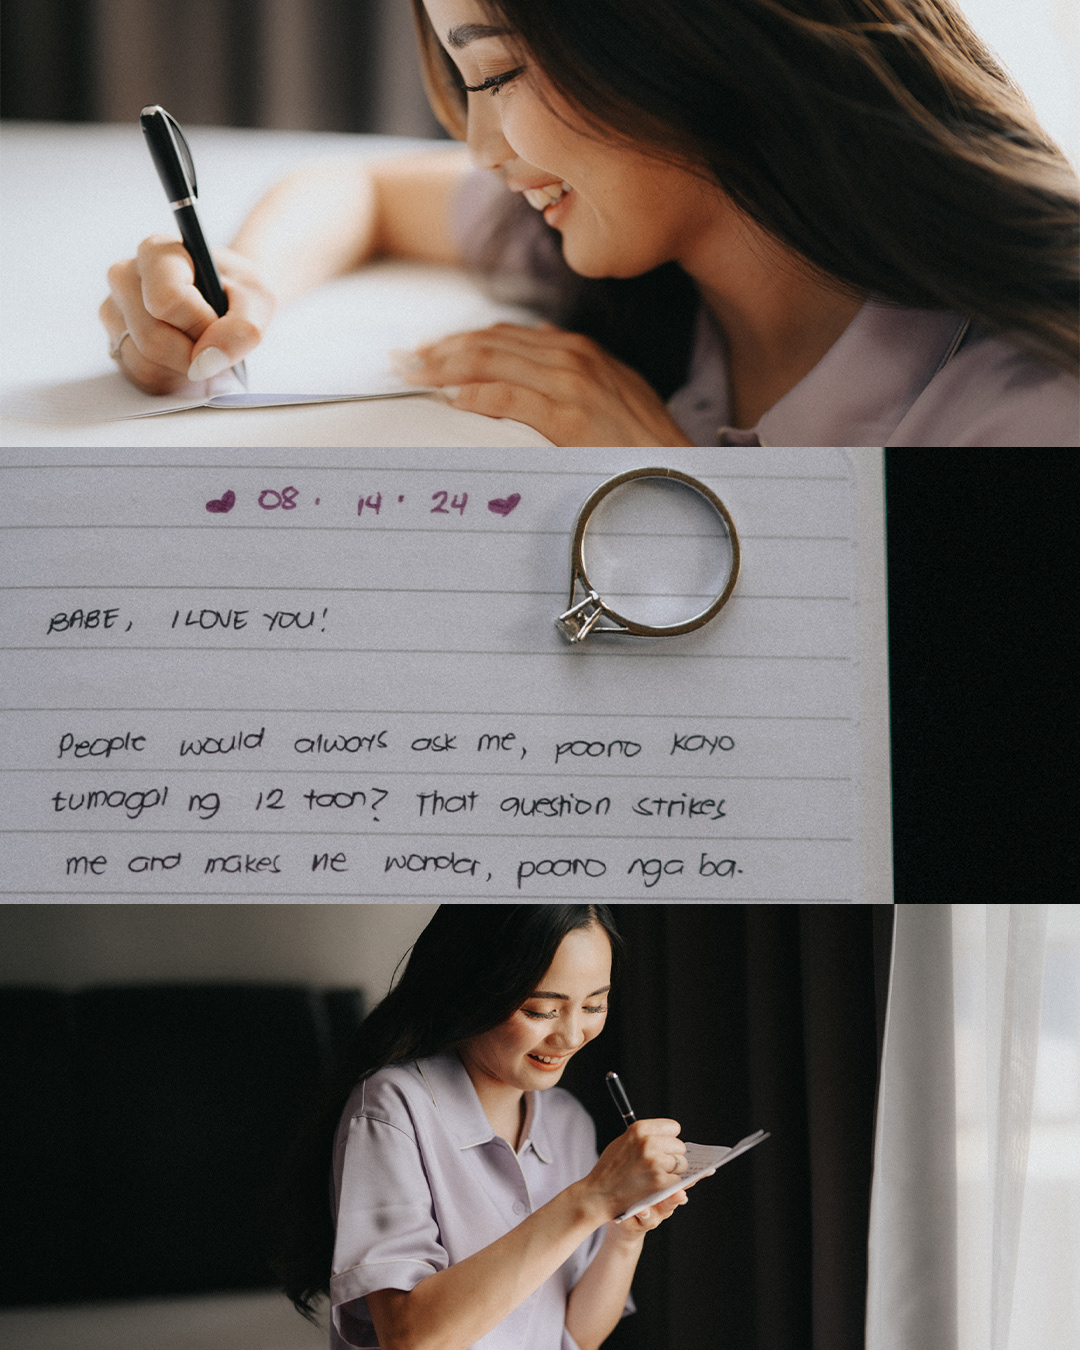 ♥ 08 · 14 · 24 ♥
BABE, I LOVE YOU!
People would always ask me, paano kayo
tumagal ng 12 taon? That question strikes
me and makes me wonder, paano nga ba.